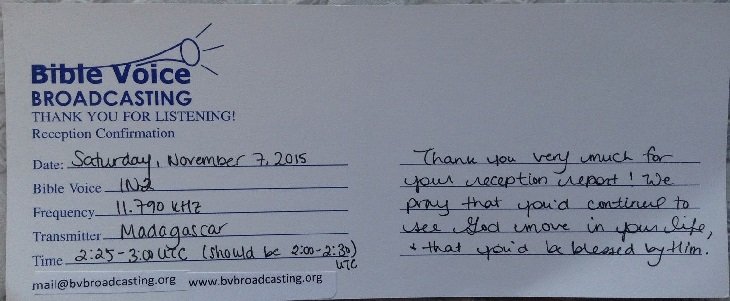 Bible Voice
BROADCASTING
THANK YOU FOR LISTENING!
Reception Confirmation
Date: Saturday, November 7, 2015
Bible Voice IN2
Frequency 11.790 KHz
Transmitter Madagascar
Time 2:25-3:00 UTC (should be 2:00-2:30)
UTC
mail@bvbroadcasting.org www.bvbroadcasting.org
Thank you very much for
your reception report! We
pray that you'd continue to
see God move in your life,
+ that you'd be blessed by Him.